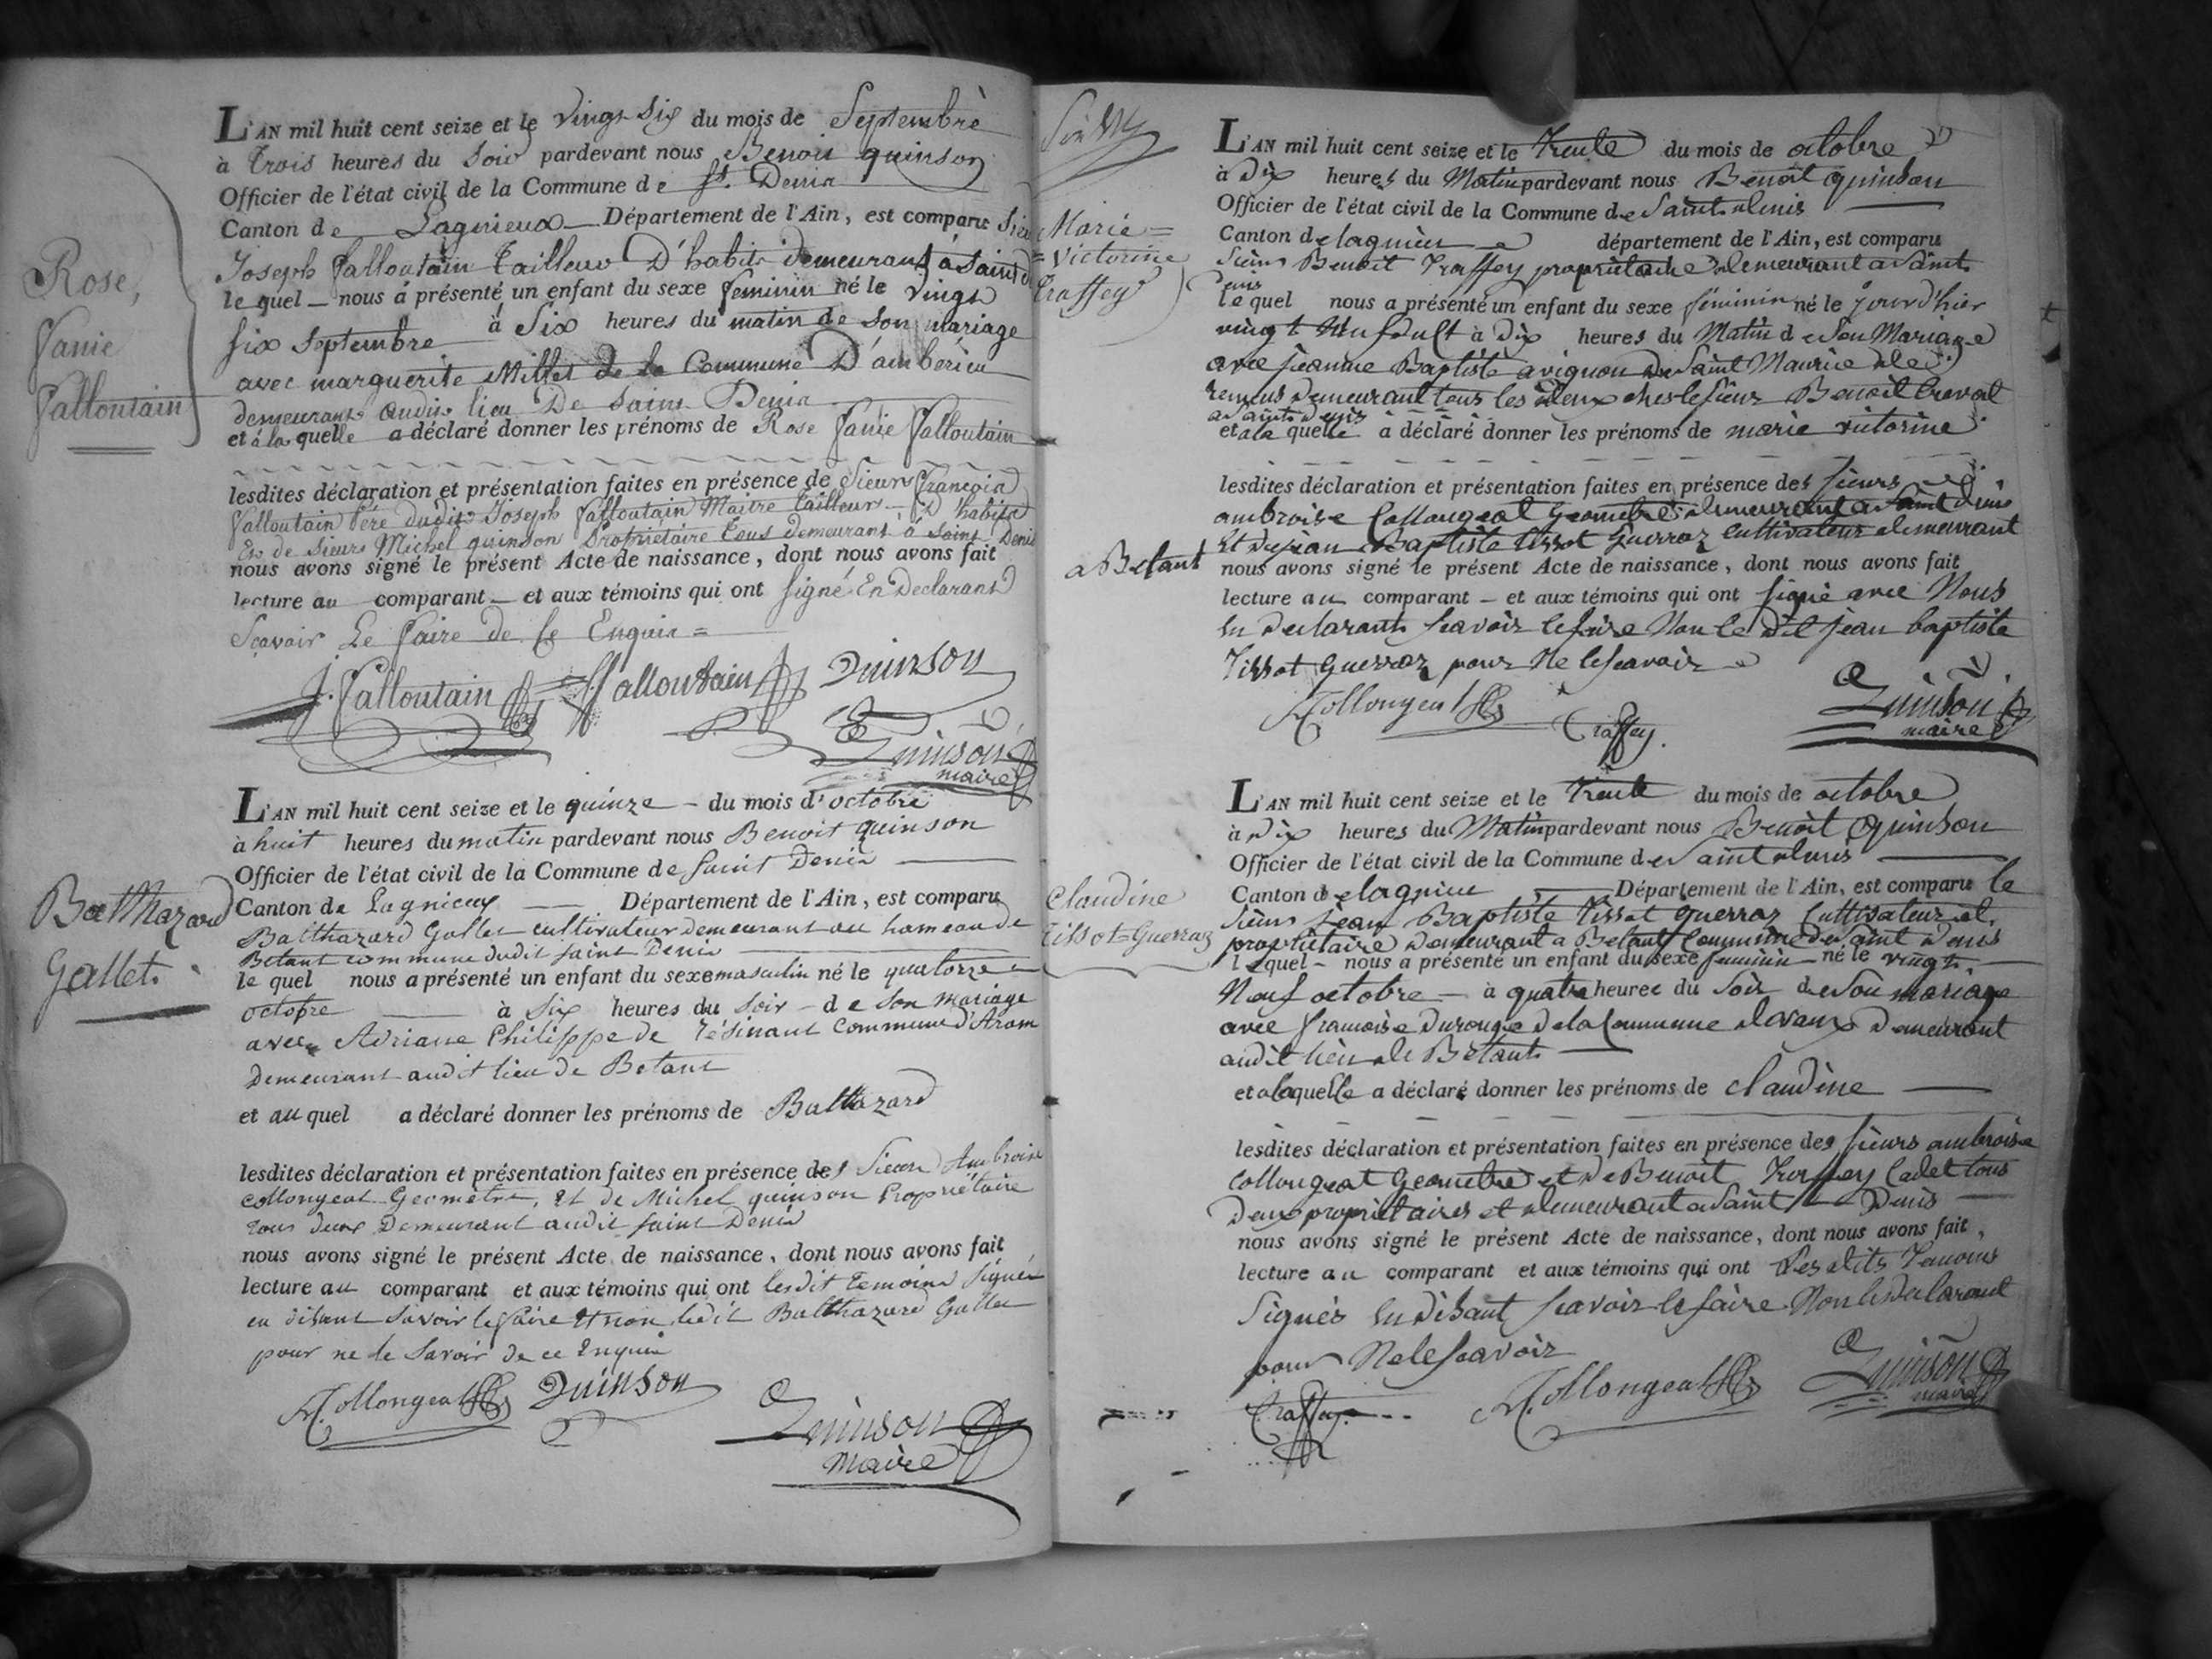 Rose,
fanie
falloutain
L'AN mil huit cent seize et le vingt Six du mois de Septembre
à Trois heures du Soir pardevant nous Benoit quinson
Officier de l'état civil de la Commune de St. Denis
Canton de Lagnieux Département de l'Ain, est comparu Sieur
Joseph falloutain Tailleur D'habits demeurant á Saint
le quel nous á présenté un enfant du sexe feminin né le vingt
six Septembre á Six heures du matin de son mariage
avec marguerite Millet de la Commune D'ambérieu
demeurant audit lieu De Saint Denis
et á la quelle a déclaré donner les prénoms de Rose fanie falloutain
lesdites déclaration et présentation faites en présence de Sieur françois
falloutain Pére dudit Joseph falloutain Maitre tailleur D habits
Et de Sieur Michel quinson Propriétaire tous demeurant á Saint Denis
nous avons signé le présent Acte de naissance, dont nous avons fait
lecture au comparant et aux témoins qui ont Signé En Declarant
Sçavoir Le faire de Ce Enquis =
J. falloutain falloutain Quinson
Quinson
maire
Balthazard
Gallet.
L'AN mil huit cent seize et le quinze du mois d'octobre
à huit heures du matin pardevant nous Benoit quinson
Officier de l'état civil de la Commune de Saint Denis
Canton de Lagnieux Département de l'Ain, est comparu
Balthazard Gallet cultivateur demeurant au hameau de
Betant commune dudit Saint Denis
le quel nous a présenté un enfant du sexe masculin né le quatorze
octobre à six heures du soir de son mariage
avec Adriane Philippe de résinant commune d'Aram
Demeurant audit lieu de Betant
et au quel a déclaré donner les prénoms de Balthazard
lesdites déclaration et présentation faites en présence des Sieurs Ambroise
Collongeat Geomètre, Et de Michel quinson Propriétaire
tous deux Demeurant audit Saint Denis
nous avons signé le présent Acte de naissance, dont nous avons fait
lecture au comparant et aux témoins qui ont lesdit temoins Signés
en disant Savoir le faire Et non ledit Balthazard Gallet
pour ne le Savoir de ce Enquis
A. Collongeat Quinson
Quinson
Maire
Marie =
= Victorine
Traffey
L'AN mil huit cent seize et le trente du mois de octobre
à Dix heures du Matin pardevant nous Benoit quinson
Officier de l'état civil de la Commune de Saint denis
Canton de lagnieu département de l'Ain, est comparu
Sieur Benoit Traffey propriètaire demeurant a Saint
denis
le quel nous a présenté un enfant du sexe féminin né le jour d'hier
vingt Neuf dult à dix heures du Matin de Son Mariage
avec jeanne Baptiste avignon de Saint Maurice de
remens demeurant tous les deux ches le sieur Benoit Creval
a Saint denis
et a la quelle à déclaré donner les prénoms de marie victorine
lesdites déclaration et présentation faites en présence des sieurs
ambroise Collongeat Geometre demeurant a Saint denis
Et de jean Baptiste tissot Guerraz Cultivateur demeurant
a Betant
nous avons signé le présent Acte de naissance, dont nous avons fait
lecture au comparant et aux témoins qui ont signé avec Nous
En declarant scavoir le faire Non le dit jean baptiste
Tissot Guerraz pour Ne le scavoir
A. Collongeat Traffey.
Quinson
maire
Claudine
Tissot=Guerraz
L'AN mil huit cent seize et le trente du mois de octobre
à Dix heures du Matin pardevant nous Benoit Quinson
Officier de l'état civil de la Commune de Saint denis
Canton de lagnieu Département de l'Ain, est comparu le
Sieur jean Baptiste tissot Guerraz Cultivateur et
propriètaire demeurant a Betant Commune de Saint denis
lequel nous a présenté un enfant du sexe feminin né le vingt
Neuf octobre à quatre heures du Soir de Son mariage
avec francoise durouge de la Commune de vaux Demeurant
audit lieu de Bétant
et a laquelle a déclaré donner les prénoms de claudine
lesdites déclaration et présentation faites en présence des sieurs ambroise
Collongeat Geometre et de Benoit Traffey Cadet tous
Deux propriétaires et demeurant a Saint Denis
nous avons signé le présent Acte de naissance, dont nous avons fait
lecture au comparant et aux témoins qui ont Les dits Temoins
Signés En disant scavoir le faire Non le declarant
pour Ne le scavoir
Traffey A. Collongeat Quinson
maire